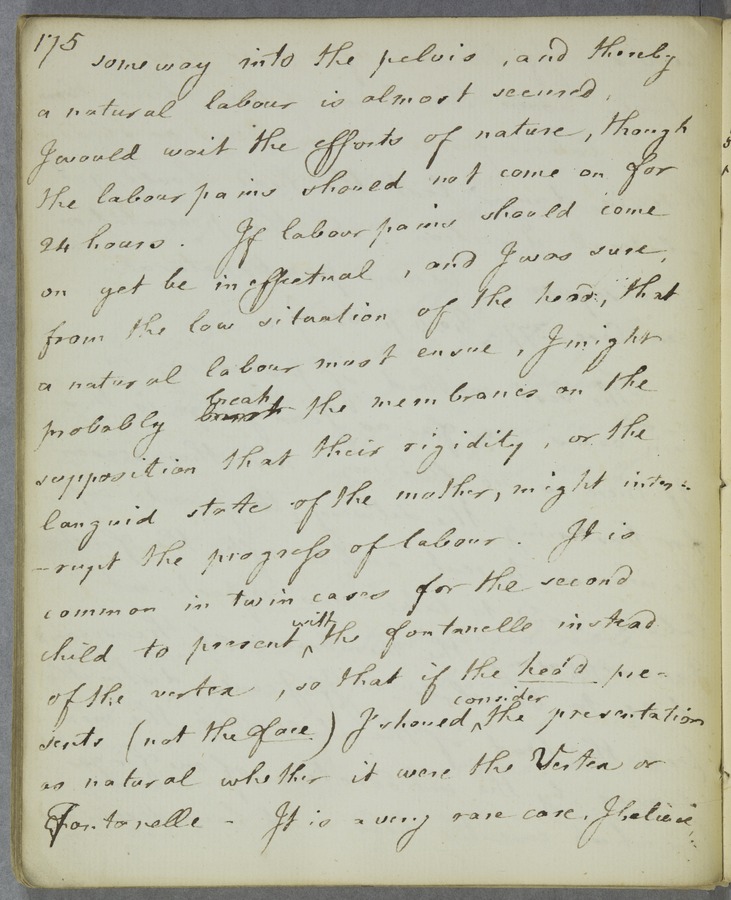 175
some way into the pelvis, and thereby
a natural labour is almost secured,
I would wait the efforts of nature, though
the labour pains should not come on for
24 hours. If labour pains should come
on yet be ineffectual, and I was sure,
from the low situation of the head, that
a natural labour must ensue, I might
probably break the membranes on the
supposition that their rigidity, or the
languid state of the mother, might inter-
-rupt the progress of labour. It is
common in twin cases for the second
child to present with the fontanelle instead
of the vertex, so that if the head pre-
sents (not the face) I should consider the presentation
as natural whether it were the Vertex or
Fontanelle - It is a very rare case, I believe,